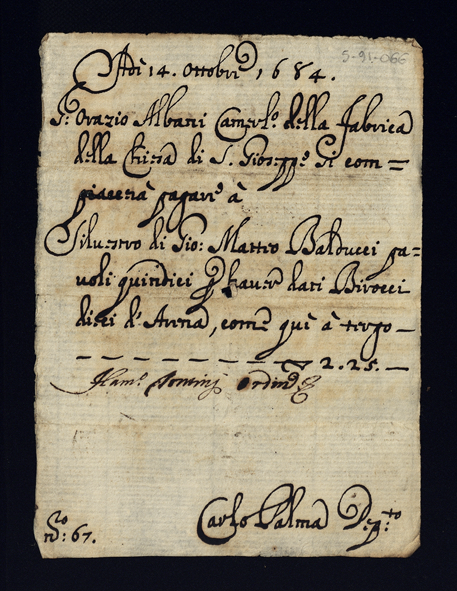 5-91-066
Adi 14. Ottobrē 1684.
S.r Orazio Albani Camerl.o della Fabrica
della Chiesa di S. Gioseppe Si com=
piacerà pagare à
Siluestro di Gio: Matteo Balducci pa=
uoli quindici p hauer dati Birocci
dieci d'Arena, come quì à tergo—
2.25.—
ordind
Carlo Palma Dep.to
N.o: 67.